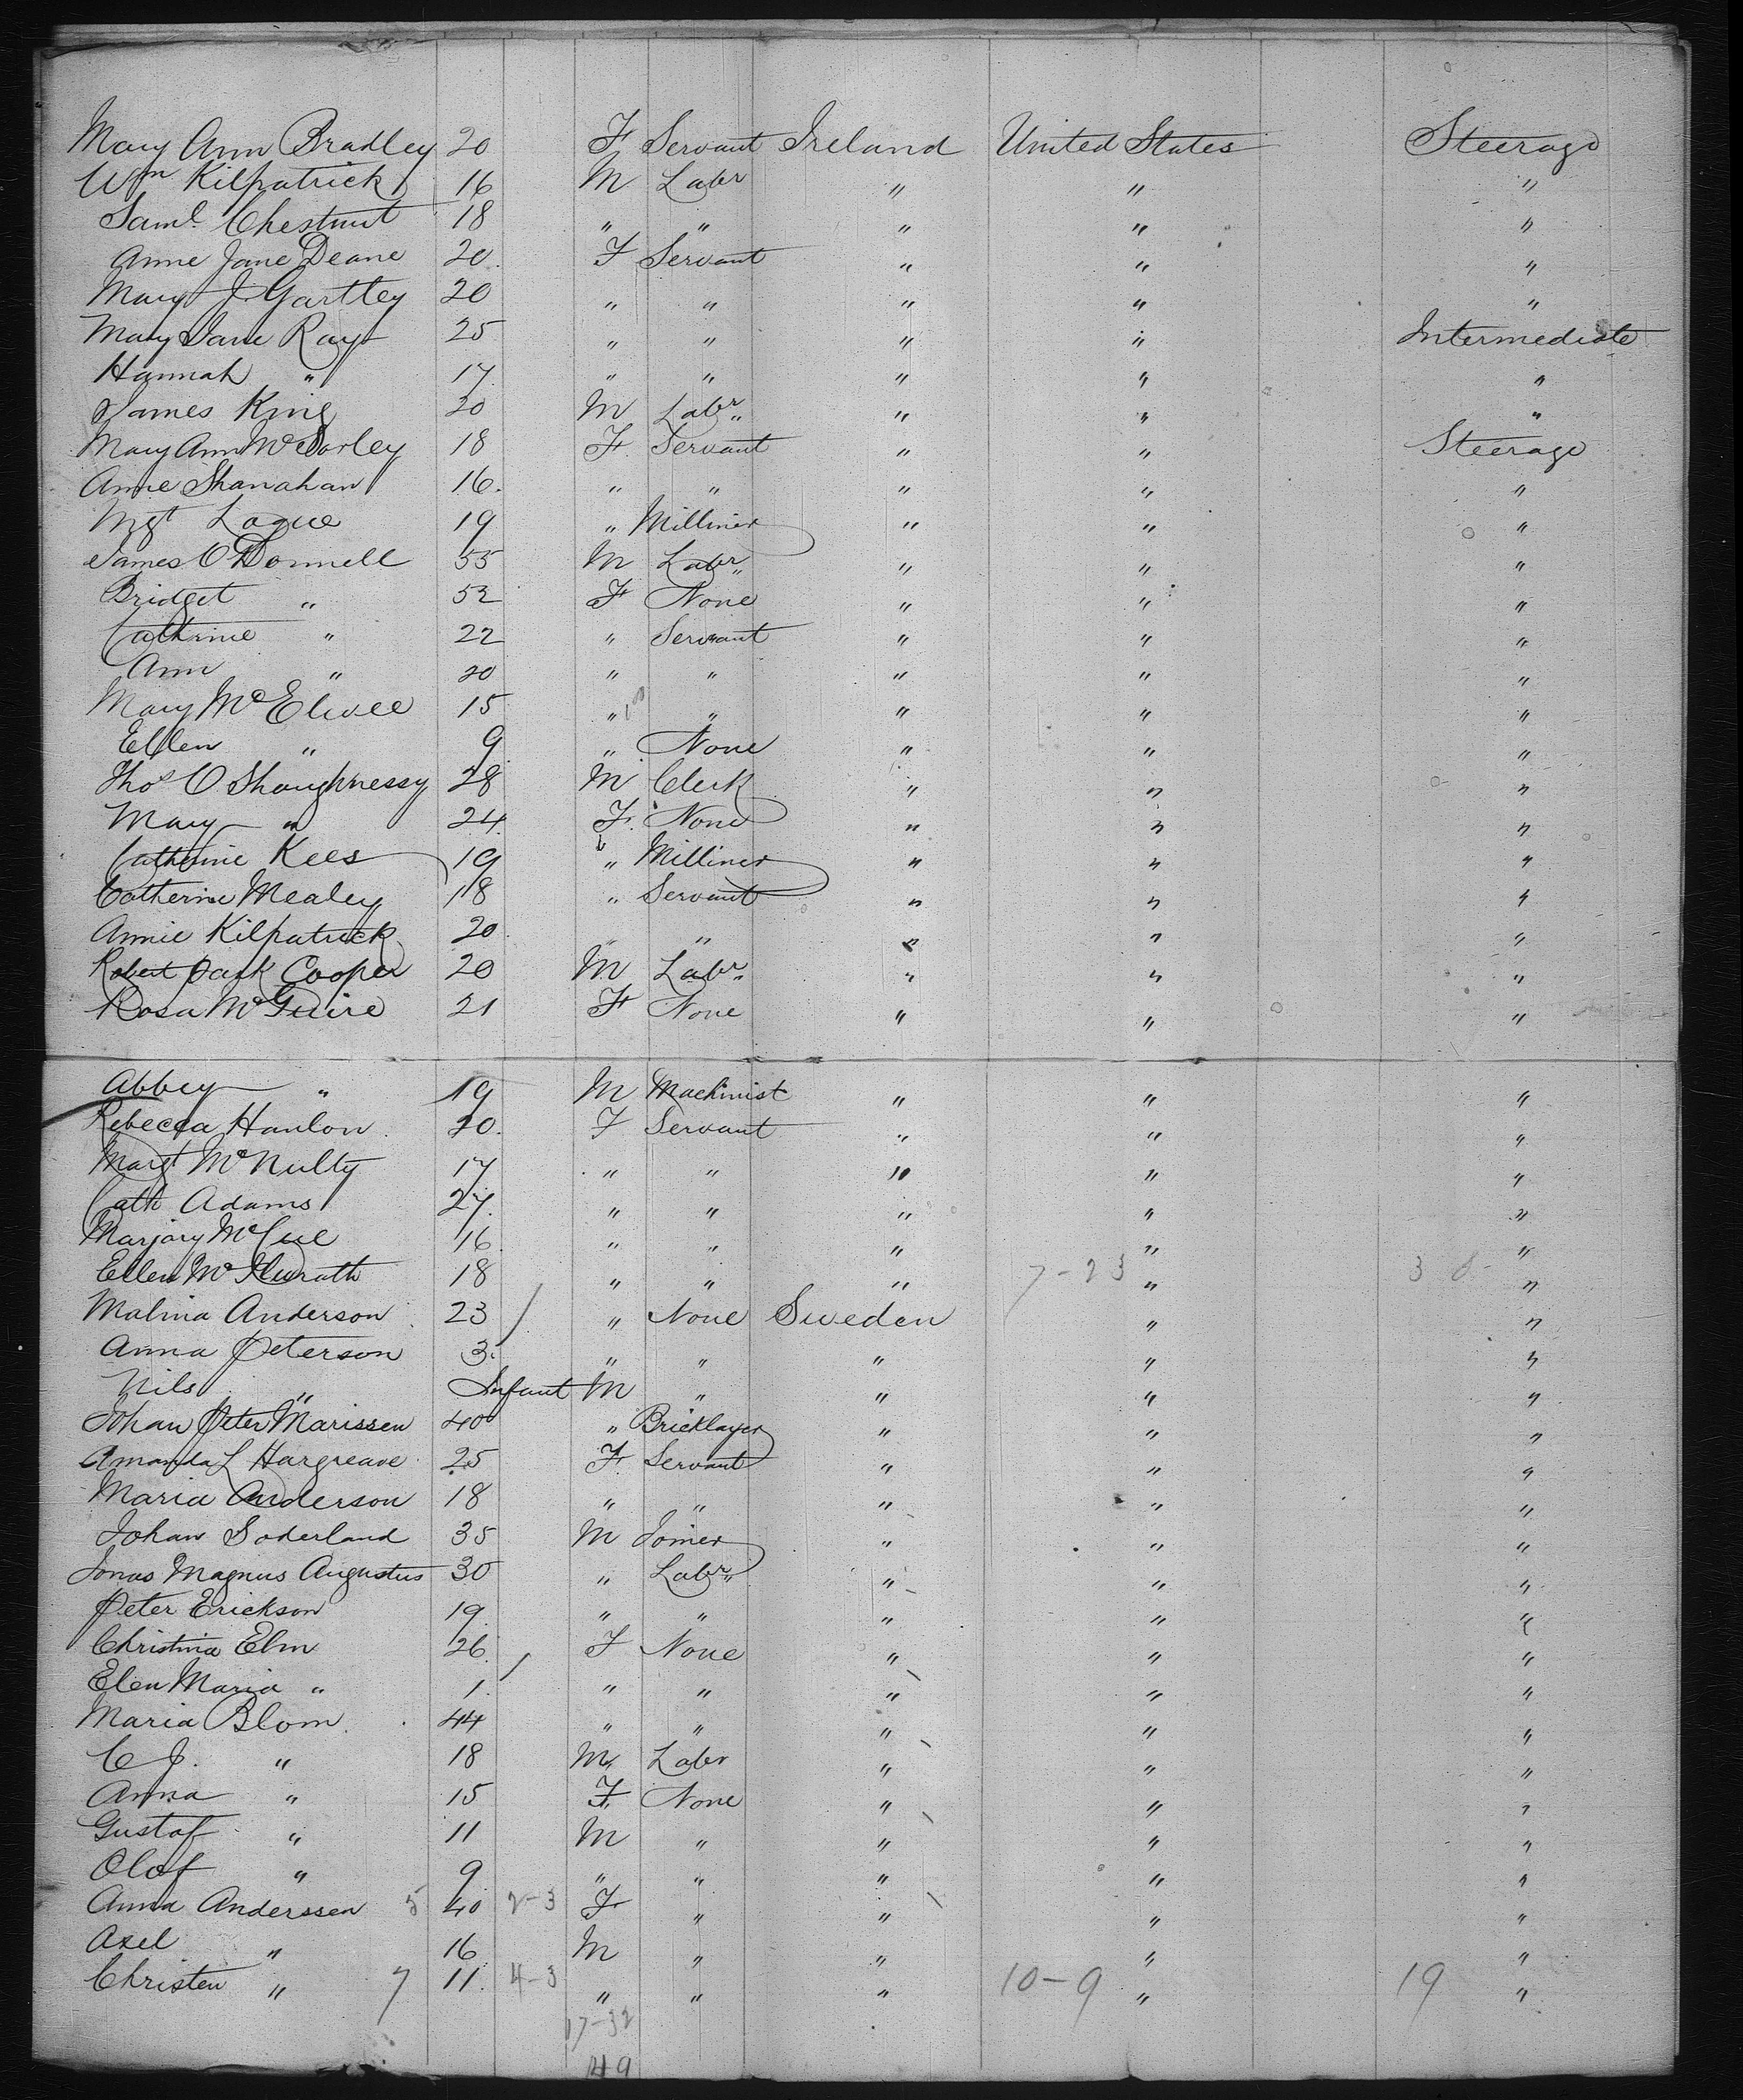 Mary Ann Bradley 20 F Servant Ireland United States Steerage
Wm Kilpatrick 16 M Labr " " "
Saml. Chestnut 18 " " " " "
Anne Jane Deane 20 F Servant " " "
Mary J. Gartley 20 " " " " "
Mary Jane Ray 25 " " " " Intermediate
Hannah " 17 " " " " "
James King 20 M Labr " " "
Mary Ann McSorley 18 F Servant " " Steerage
Anne Shanahan 16 " " " " "
Mgt Logue 19 " Milliner " " "
James O'Donnell 55 M Labr " " "
Bridget " 52 F None " " "
Cathrine " 22 " Servant " " "
Ann " 20 " " " " "
Mary McElwee 15 " " " " "
Ellen " 9 " None " " "
Thos O'Shaughnessy 28 M Clerk " " "
Mary " 24 F None " " "
Catherine Kees 19 " Milliner " " "
Catherine Mealey 18 " Servant " " "
Annie Kilpatrick 20 " " " " "
Robert Park Cooper 20 M Labr " " "
Rosa McGuire 21 F None " " "
Abbey " 19 M Machinist " " "
Rebecca Hanlon 20 F Servant " " "
Margt McNulty 17 " " " " "
Cath Adams 27 " " " " "
Marjory McCue 16 " " " " "
Ellen 18 " " " 7-23 " 3 "
Malina Anderson 23 / " None Sweden " "
Anna Peterson 3 " " " " "
Nils " Infant M " " " "
Johan Peter Marissen 40 " Bricklayer " " "
Amanda L Hargreave 25 F Servant " " "
Maria Anderson 18 " " " " "
Johan Soderland 35 M Joiner " " "
Jonas Magnus Augustus 30 " Labr " " "
Peter Erickson 19 " " " " "
Christina Elm 26 / F None " " "
Elen Maria " 1 " " " " "
Maria Blom 44 " " " " "
C J. " 18 M Labr " " "
Anna " 15 F None " " "
Gustaf " 11 M " " " "
Olof " 9 " " " " "
Anna Anderssen 5 40 2-3 F " " " "
Axel " 16 M " " " "
Christen " 7 11 4-3 " " " 10-9 " 19 "
17-32
49